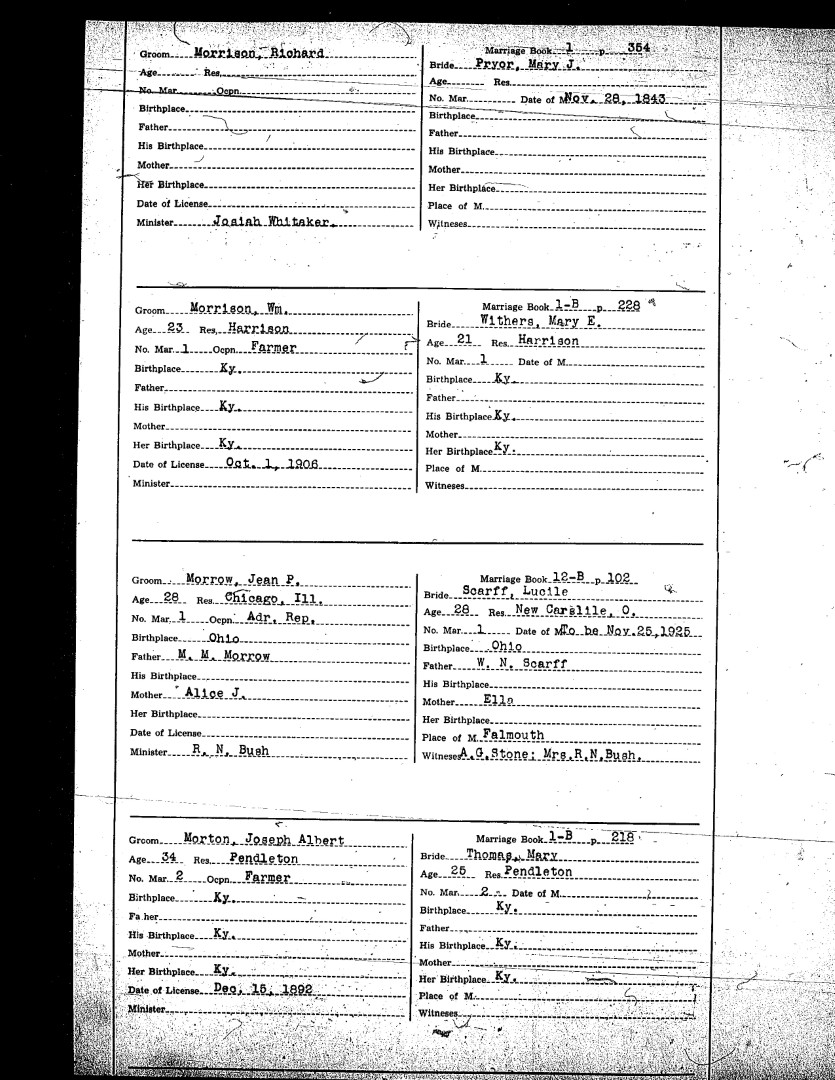 Groom Morrison, Richard
Age Res.
No. Mar. Ocpn.
Birthplace
Father
His Birthplace
Mother
Her Birthplace
Date of License
Minister Josiah Whitaker.
Marriage Book 1 p. 354
Bride Pryor, Mary J.
Age Res.
No. Mar. Date of M. Nov. 28, 1843
Birthplace
Father
His Birthplace
Mother
Her Birthplace
Place of M.
Witneses
Groom Morrison, Wm.
Age 23 Res. Harrison
No. Mar. 1 Ocpn. Farmer
Birthplace Ky.
Father
His Birthplace Ky.
Mother
Her Birthplace Ky.
Date of License Oct. 1, 1906
Minister
Marriage Book 1-B p. 228
Bride Withers, Mary E.
Age 21 Res. Harrison
No. Mar. 1 Date of M.
Birthplace Ky.
Father
His Birthplace Ky.
Mother
Her Birthplace Ky.
Place of M.
Witneses
Groom Morrow, Jean P.
Age 28 Res. Chicago, Ill.
No. Mar. 1 Ocpn. Adr. Rep.
Birthplace Ohio
Father M. M. Morrow
His Birthplace
Mother Alice J.
Her Birthplace
Date of License
Minister R. N. Bush
Marriage Book 12-B p. 102
Bride Scarff, Lucile
Age 28 Res. New Carslile, O.
No. Mar. 1 Date of M. To be Nov.25,1925
Birthplace Ohio
Father W. N. Scarff
His Birthplace
Mother Ella
Her Birthplace
Place of M. Falmouth
Witneses A.G.Stone; Mrs.R.N.Bush.
Groom Morton, Joseph Albert
Age 34 Res. Pendleton
No. Mar. 2 Ocpn. Farmer
Birthplace Ky.
Father
His Birthplace Ky.
Mother
Her Birthplace Ky.
Date of License Dec. 15, 1892
Minister
Marriage Book 1-B p. 218
Bride Thomas, Mary
Age 25 Res. Pendleton
No. Mar. 2 Date of M.
Birthplace Ky.
Father
His Birthplace Ky.
Mother
Her Birthplace Ky.
Place of M.
Witneses